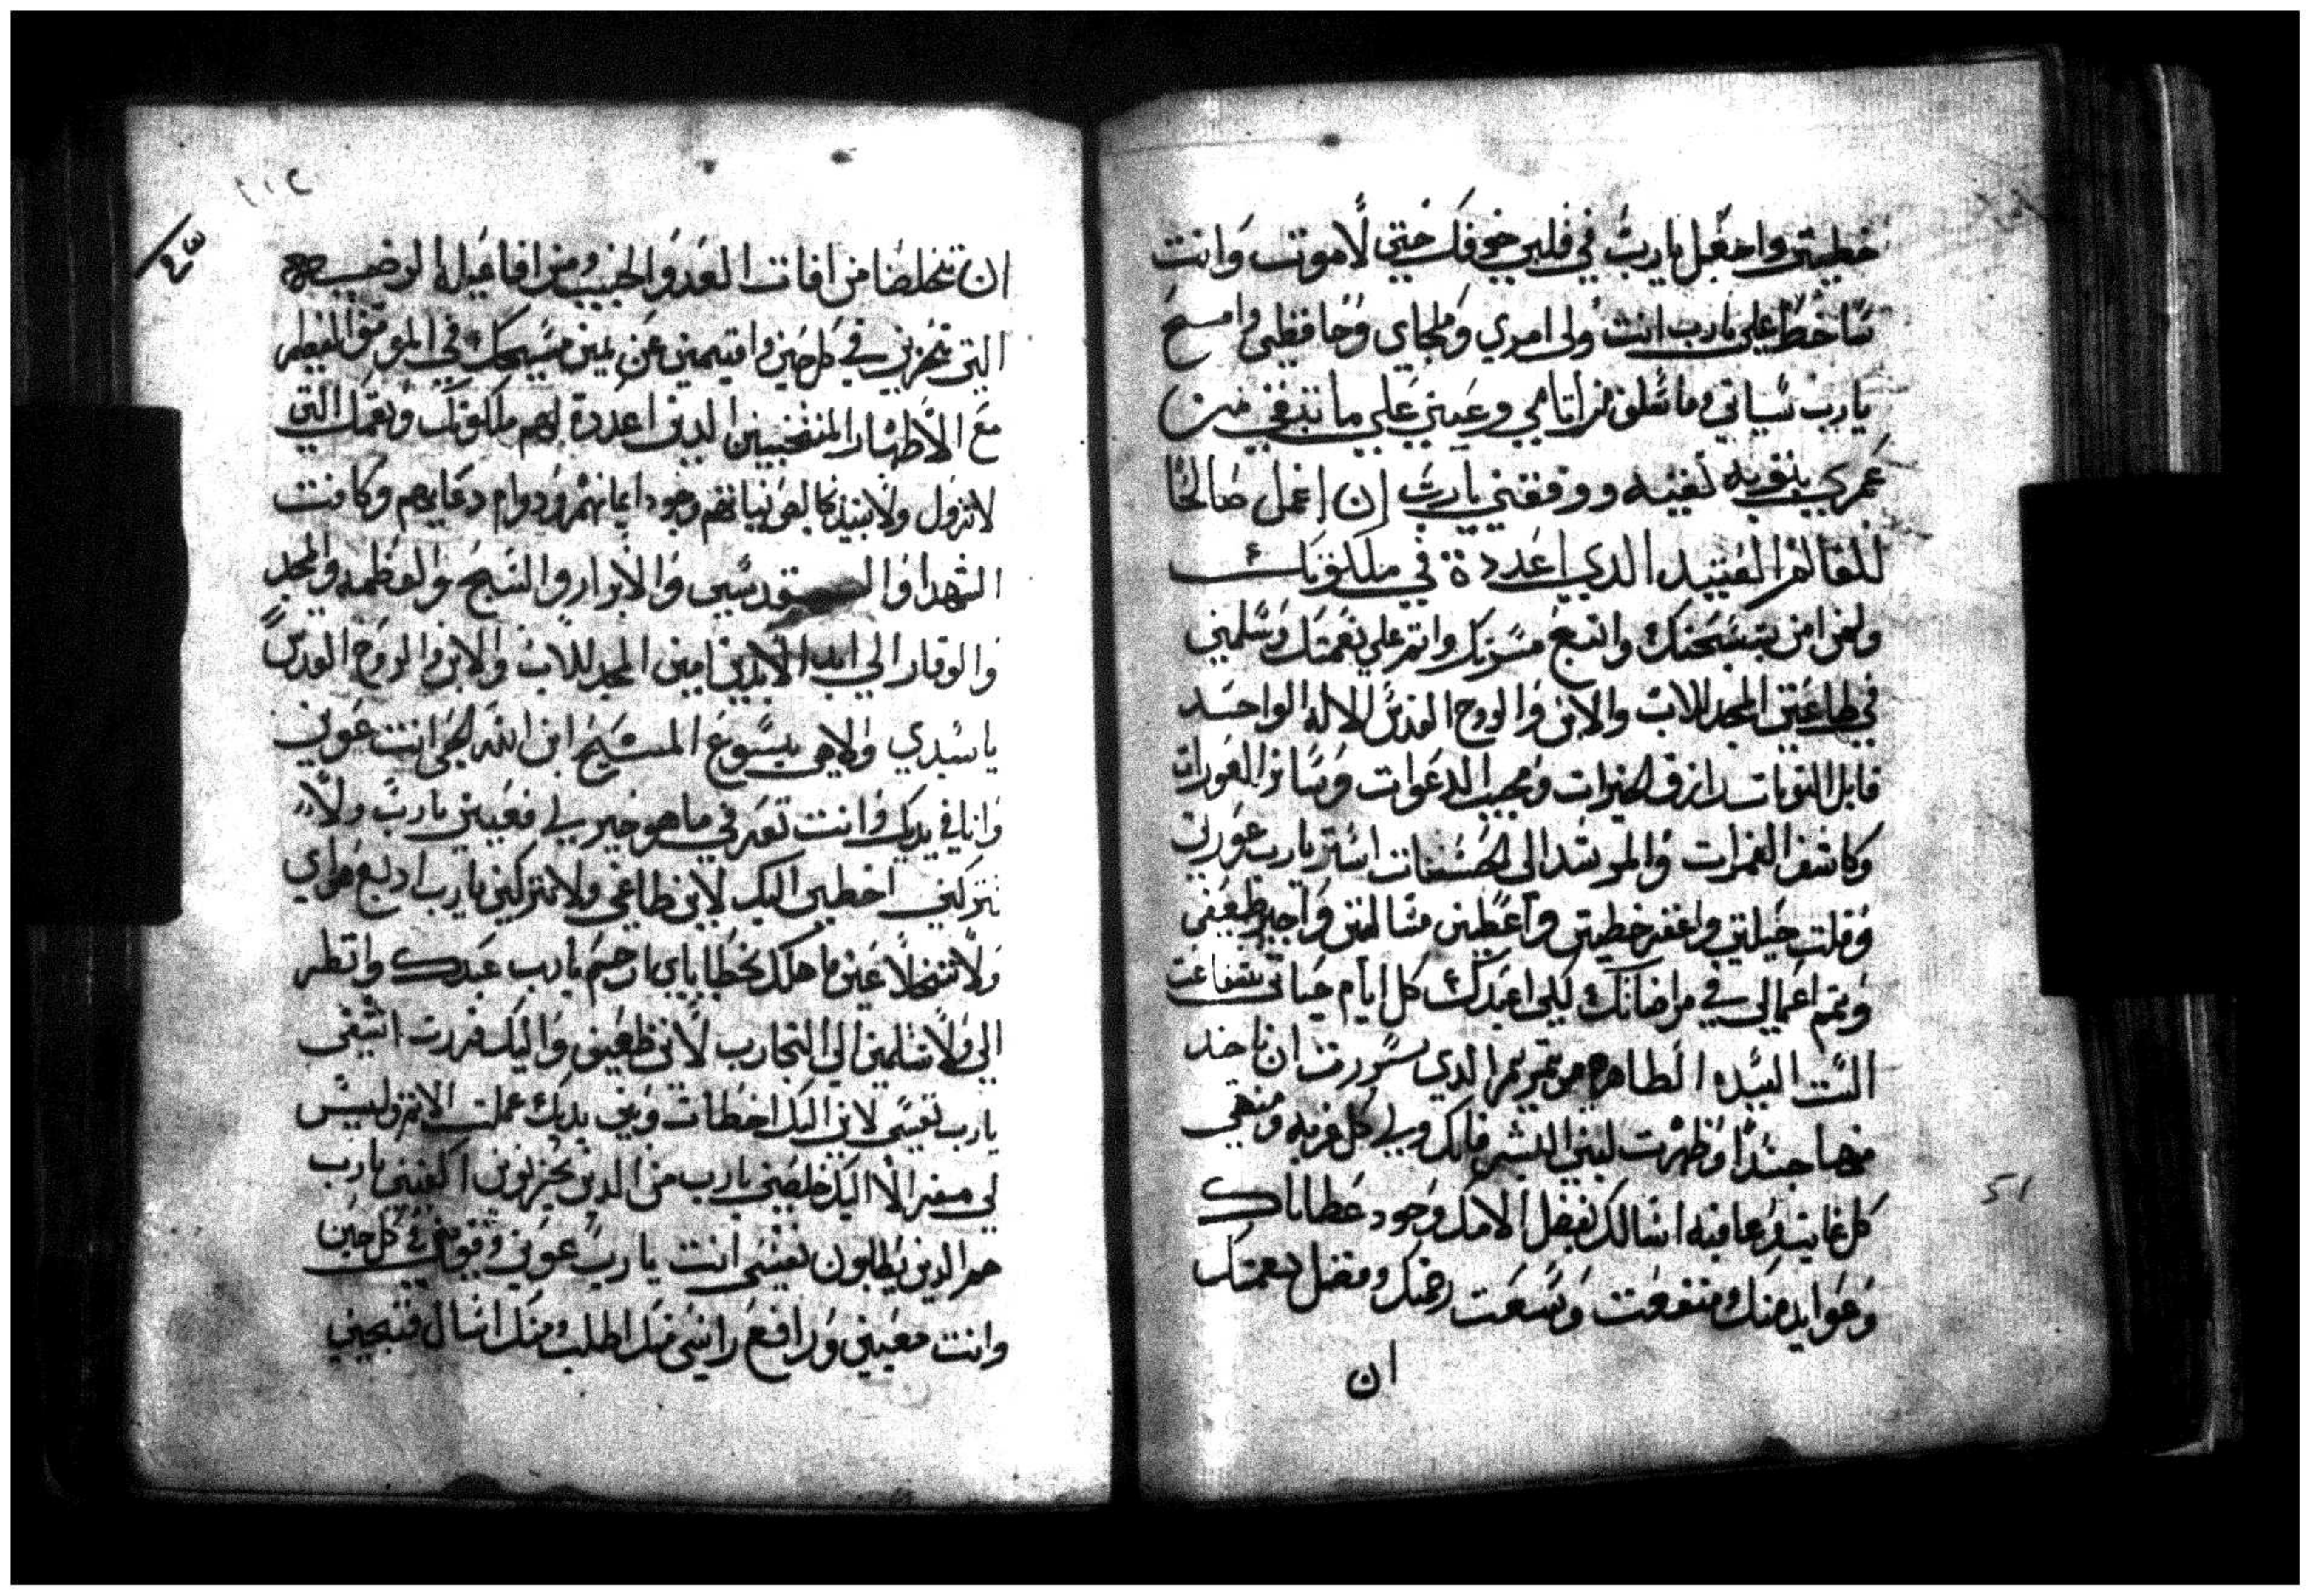 خطيتي واجعل يارب في قلبي خوفك حتي لاموت وانت
ساخط علي يارب انت ولي امري وملجاي وحافظي وامسح
يارب سياتي وما سلف من اتامي وعيني علي ما تبقي من
عمري بتوبه نقيه ووفقني يارب ان اعمل صالحا
للعالم العتيد الدي اعددة في ملكوتك
ولمن امن بتسبحتك واتبع مسرتك واتم علي نعمتك وسلمني
في طاعتي المجد للاب والابن والروح القدس الاله الواحد
قابل التوبات رازق الخيرات ومجيب الدعوات وساتر العورات
وكاشف الغمرات والمرشد الي الحسنات استر يارب عورتي
وقلت حيلتي واغفر خطيتي واعطيني مسالتي واجبر ضعفي
وتمم اعمالي في مراضاتك ليلي اعبدك كل ايام حياتي بشفاعت
الست السيده الطاهره مرتمريم الدي سررت ان تاخد
منها جسدا وظهرت لبني البشر فانك وبي كل غربه ومنتهي
كل غايت وعافيه اسالك بفضل الامك وجود عطاياك
وعوايد منك ومنفعت وسعت رحمتك وفضل نعمتك
ان
١١٢
٤٣
ان تخلصنا من افات العدو الخبيث ومن افاعيله الردي
التي تحزني في كل حين واقيمني عن يمين مسيحك في الموقف
مع الاطهار المنتخبين الدين اعددة لهم ملكوتك ونعمك التي
لاتزول ولا تبيد وجود ايمانهم ودوام دعايهم وكافت
الشهدا والقديسين والابرار والتسبح والعظمه والمجد
والوقار الي ابد الابدين امين المجد للاب والابن والروح القدس
ياسيدي والاهي يسوع المسيح ابن الله الحي انت عوني
وانا في يديك وانت تعرف ما هو خير لي فعيني يارب ولا
تتركني اخطي اليك لاني طاغي ولا تتركني يارب اتبع هواي
ولا تتخلا عني ما هلك بخطاياي ارحم يارب عبدك وانظر
الي ولا تسلمني الي التجارب لاني ضعيف واليك هربت اشفي
يارب نفسي لاني اليك اخطات وبين يديك عملت الاتم وليس
لي مفر الا اليك خلصني يارب من الدين يحزنوني اكفيني يارب
هم الدين يطلبون نفسي انت يارب عوني وقوتي في كل حين
وانت معيني ورافع راسي منك اطلب ومنك اسال فنجيني
51